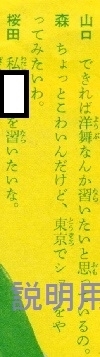 山口　できれば洋舞なんか習いたいと思っているの。
森　ちょっとこわいんだけど、東京でシ
ってみたいわ。
桜田　私
を習いたいな。
説明用